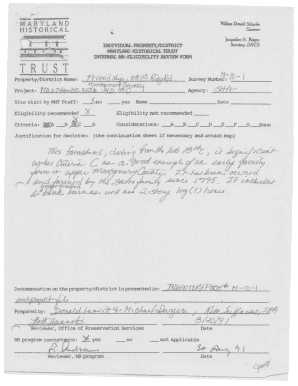 MARYLAND
HISTORICAL
TRUST
William Donald Schaefer
Governor
Jacqueline H. Rogers
Secretary, DHCD
INDIVIDUAL PROPERTY/DISTRICT
MARYLAND HISTORICAL TRUST
INTERNAL NR-ELIGIBILITY REVIEW FORM
Property/District Name: Friendship, Survey Number: M-10-1
Project: Agency: SHA
Site visit by MHT Staff: no yes Name Date
Eligibility recommended X Eligibility not recommended
Criteria: A B C D Considerations: A B C D E F G None
Justification for decision: (Use continuation sheet if necessary and attach map)
This farmstead, dating from the late 18thc, is significant
under Criteria C as a good example of an early family
farm in upper Montgomery County. It has been owned
and farmed by the same family since 1795. It includes
bank barn as well as 2-story log house.
Documentation on the property/district is presented in: Inventory Form # M-10-1
and project file
Prepared by: Donald Leavitt & Michael Dwyer,
3/20/91
Reviewer, Office of Preservation Services Date
NR program concurrence: yes no not applicable
30 Aug 91
Reviewer, NR program Date